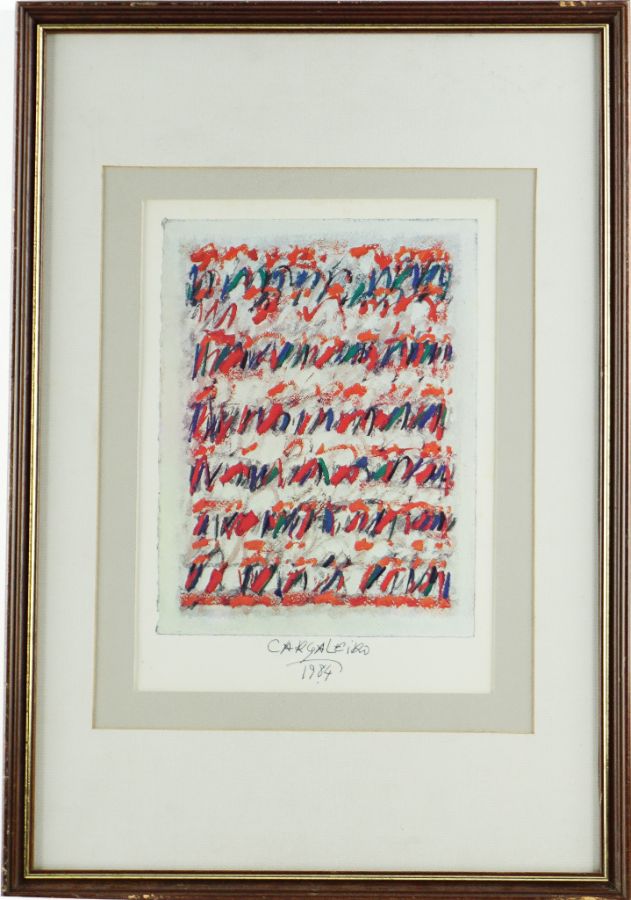 CARGALEIRO
1984